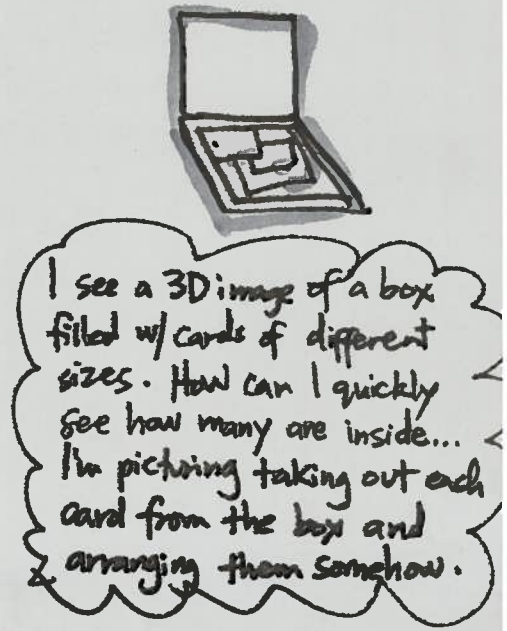 I see a 3D image of a box
filled w/ cards of different
sizes. How can I quickly
see how many are inside...
I'm picturing taking out each
card from the box and
arranging them somehow.